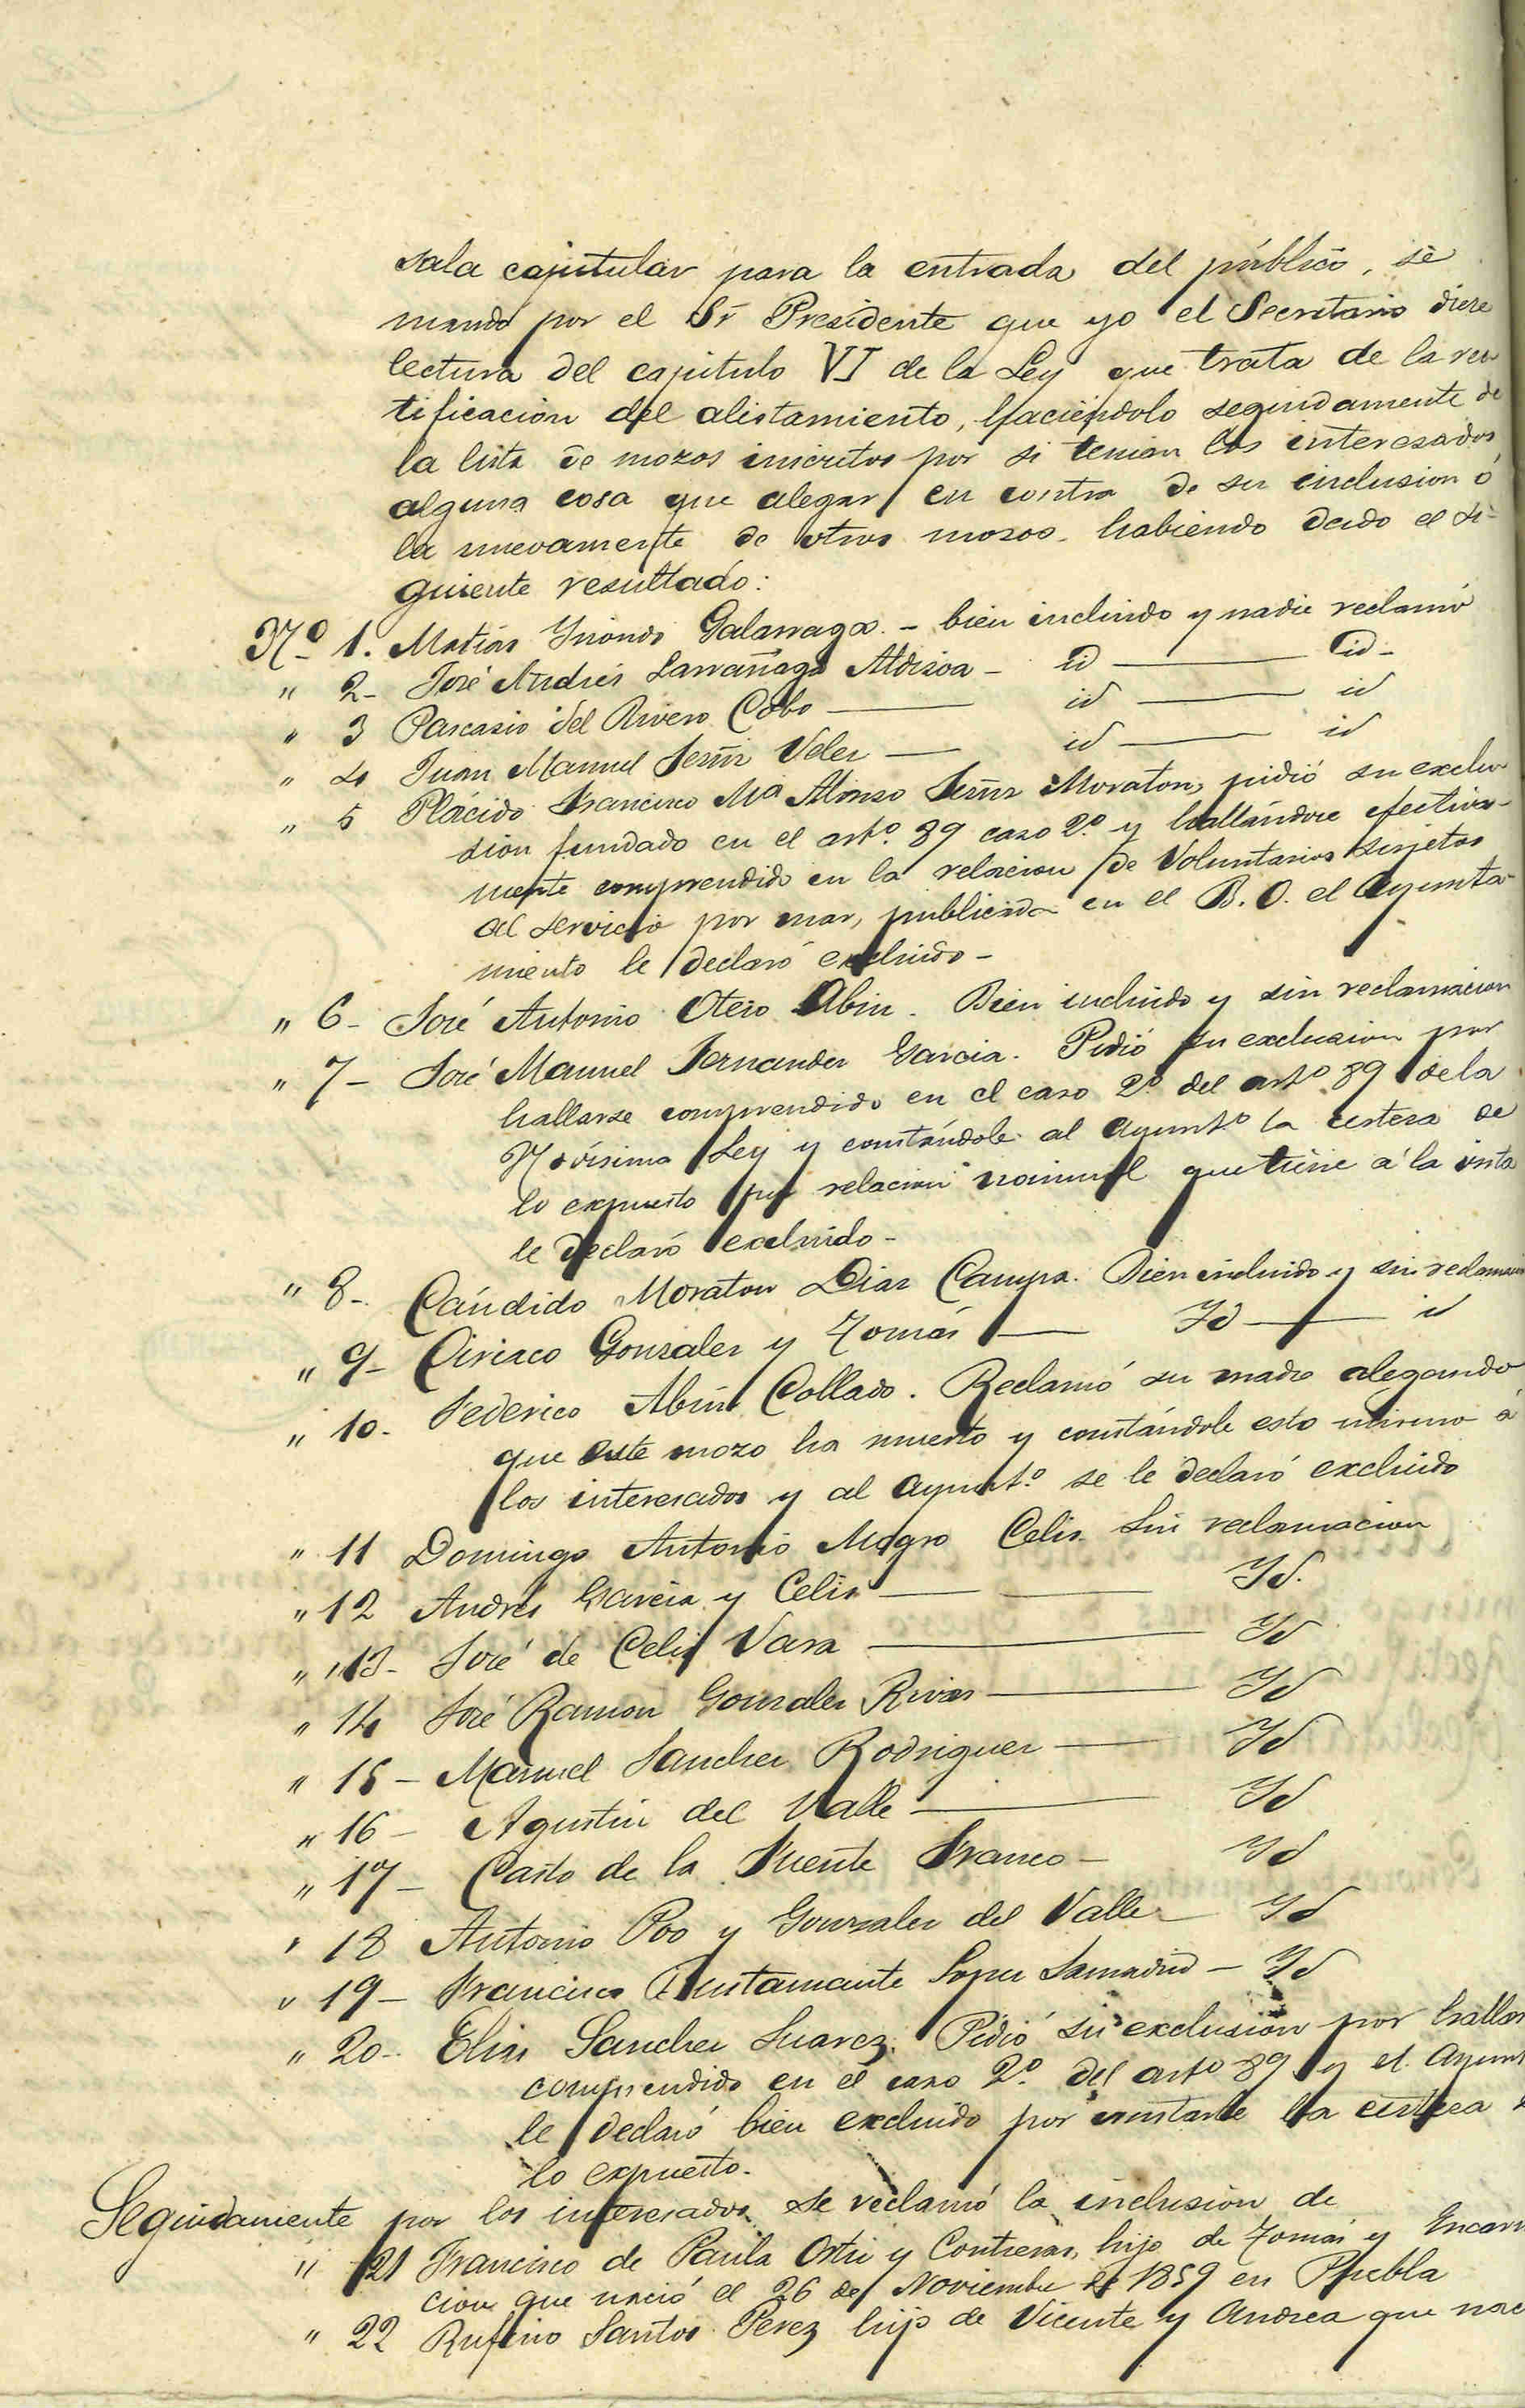 sala capitular para la entrada del público, se
mandó por el Sr Presidente que yo el Secretario diese
lectura del capitulo VI de la Ley que trata de la rec
tificación del alistamiento, haciéndolo seguidamente de
la lista de mozos inscritos por si tenian los interesados
alguna cosa que alegar en contra de su inclusion ó
la nuevamente de otros mozos, habiendo dado el si-
guiente resultado:
Nº 1. Matias Galarraga. - bien incluido y nadie reclamó
" 2- José Andrés Larrañaga - id — id -
" 3 Pascasio del Rivero Cobo — id — id
" 4 Juan Manuel Velez — id — id
" 5 Plácido Francisco Mª Alonso Moraton, pidió su exclu
sion fundado en el artº. 89 caso 2º. y hallándose efectiva-
mente comprendido en la relacion de Voluntarios sujetos
al servicio por mar, publicada en el B. O. el Ayunta-
miento le declaró excluido -
" 6- José Antonio Otero Abin. Bien incluido y sin reclamacion
" 7- José Manuel Fernandez Garcia. Pidió su exclusion por
hallarse comprendido en el caso 2º. del artº 89 de la
Novísima Ley y constándole al Ayuntº la certeza de
lo expuesto por relacion nominal que tiene á la vista
le declaró excluido -
" 8- Cándido Moraton Diaz Campa. Bien incluido y sin reclamacion
" 9- Ciriaco Gonzalez y Tomás — Id — id
" 10- Federico Abin Collado. Reclamó su madre alegando
que este mozo ha muerto y constándole esto mismo á
los interesados y al Ayuntº. se le declaró excluido
" 11 Domingo Antonio Magro Celis. Sin reclamacion
" 12 Andrés Garcia y Celis — Id.
" 13- José de Celis Vara — Id
" 14 José Ramon Gonzalez Rivas — Id
" 15- Manuel Sanchez Rodriguez — Id
" 16- Agustin del Valle — Id
" 17- Casto de la Fuente Franco - Id
" 18 Antonio Poo y Gonzalez del Valle — Id
" 19- Francisco Bustamante Lopez Lamadrid - Id
" 20- Elias Sanchez Suarez. Pidió su exclusion por hallar
comprendido en el caso 2º. del artº 89 y el Ayunt
le declaró bien excluido por constarle la certeza
lo expuesto.
Seguidamente por los interesados se reclamó la inclusion de
" 21 Francisco de Paula Ortiz y Contreras, hijo de Tomás y Encarn
cion que nació el 26 de Noviembre de 1859 en Puebla
" 22 Rufino Santos Perez hijo de Vicente y Andrea que nac